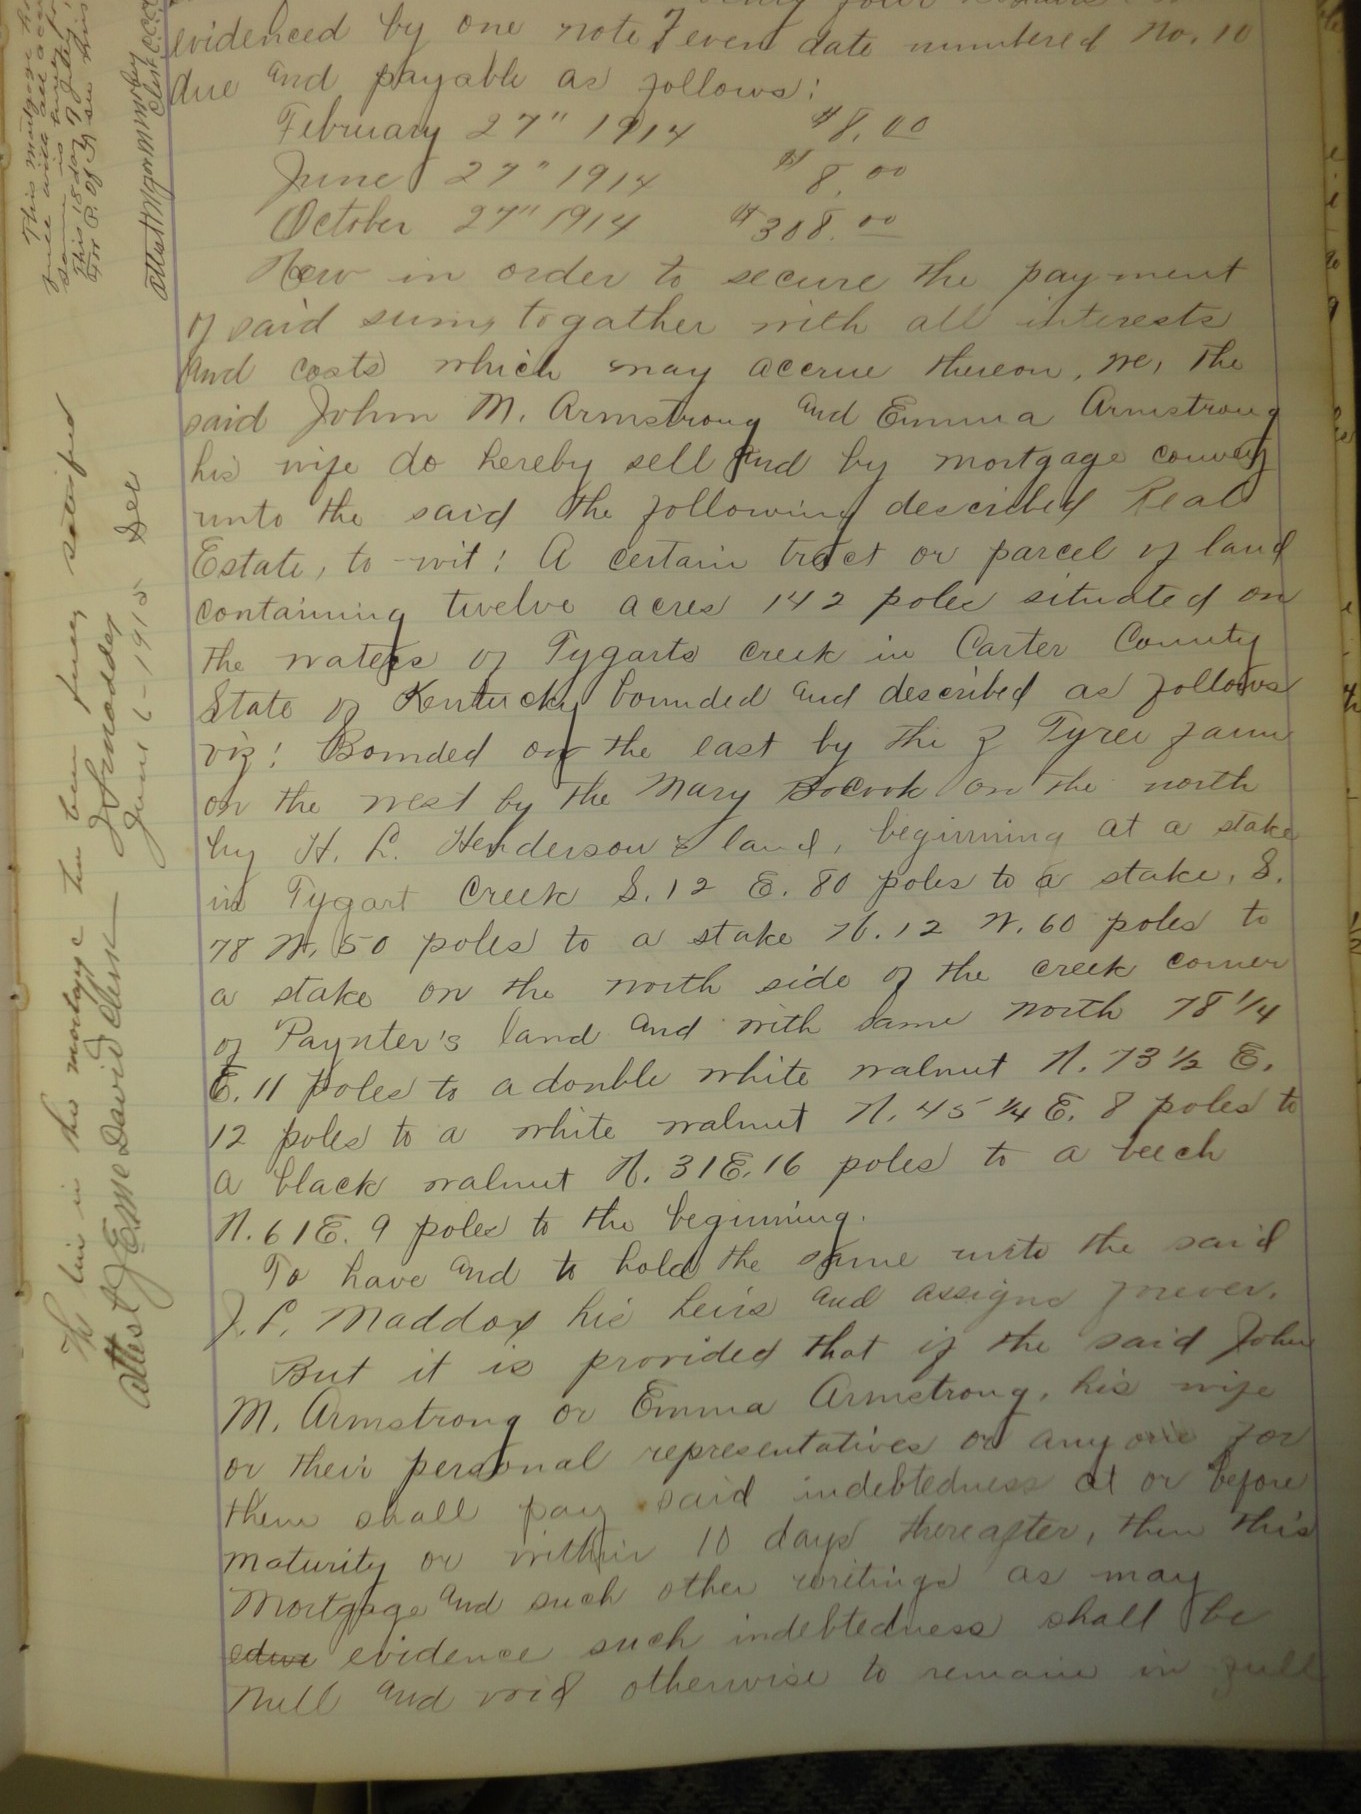 evidenced by one note of even date numbered No. 10
due and payable as follows:
February 27" 1914 $8.00
June 27" 1914 $8.00
October 27" 1914 $308.00
Now in order to secure the payment
of said sums togather with all interests
and costs which may accrue thereon, we, the
said John M. Armstrong and Emma Armstrong
his wife do hereby sell and by mortgage convey
unto the said the following described Real
Estate, to-wit: A certain tract or parcel of land
containing twelve acres 142 poles situated on
the waters of Tygarts creek in Carter County
State of Kentucky bounded and described as follows
viz: Bounded on the east by the J Tyree farm
on the west by the Mary Bocook on the north
by H. L. Henderson's land, beginning at a stake
in Tygart Creek S. 12 E. 80 poles to a stake, S.
78 W. 50 poles to a stake N. 12 W. 60 poles to
a stake on the north side of the creek corner
of Paynter's land and with same North 78 1/4
E. 11 poles to a double white walnut N. 73 1/2 E.
12 poles to a white walnut N. 45 1/4 E. 8 poles to
a black walnut N. 31 E. 16 poles to a beech
N. 61 E. 9 poles to the beginning.
To have and to hold the same unto the said
J. P. Maddox his heirs and assigns forever.
But it is provided that if the said John
M. Armstrong or Emma Armstrong, his wife
or their personal representatives or any one for
them shall pay said indebtedness at or before
maturity or within 10 days thereafter, then this
Mortgage and such other writings as may
evidence such indebtedness shall be
null and void otherwise to remain in full
The lien in this mortgage has been fully satisfied
Attest J.E. McDavid Clerk J P Maddox
June 6 - 1915 Dec
This mortgage
since with all
same is
This 18 day of July
for P. of Ay see this
Attest Clerk C.C.C.